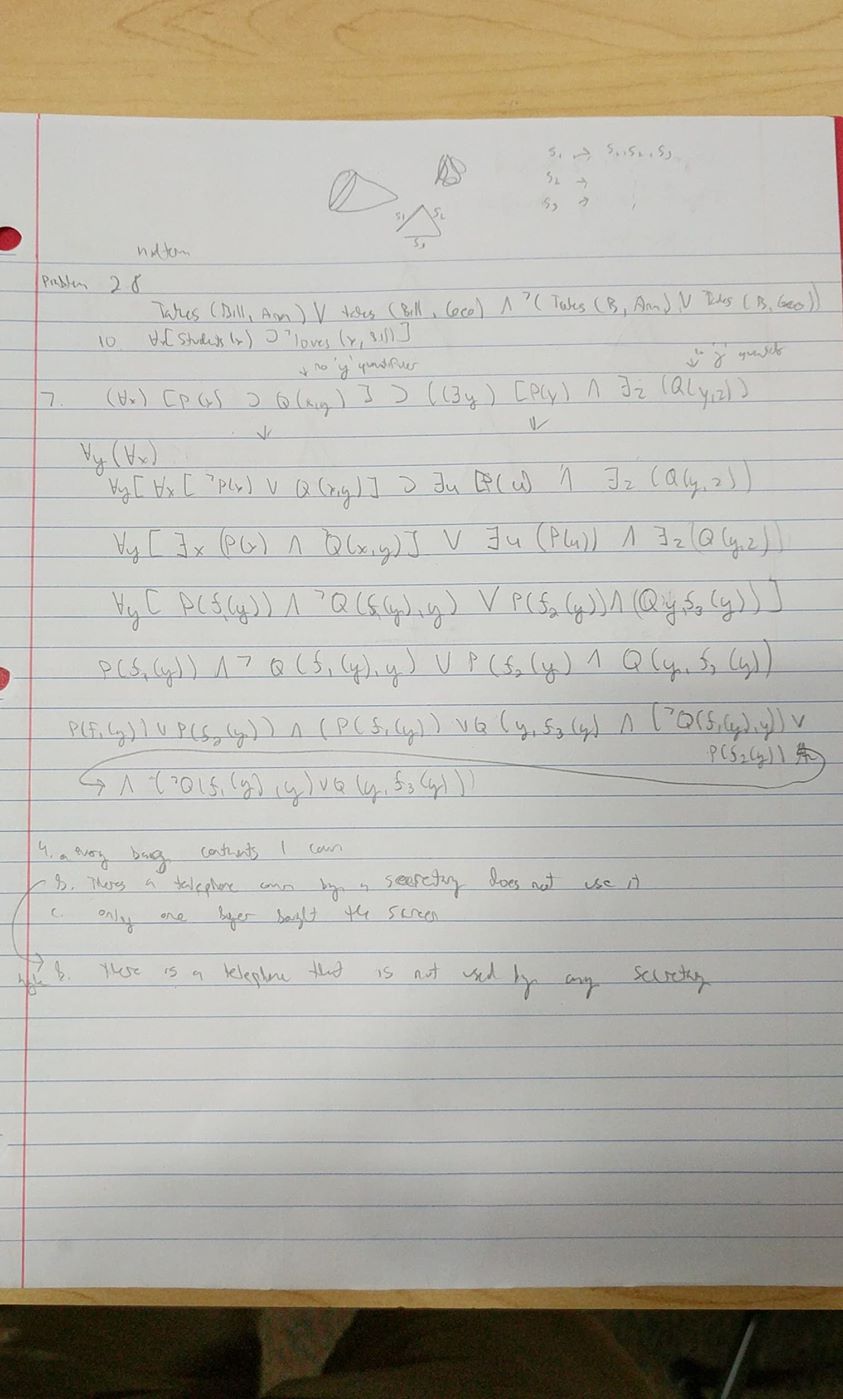 S₁ → S₁, S₂, S₃
S₂ →
S₃ →
S₁ S₂
S₃
midterm
Problem 28
Takes (Bill, Ann) ∨ takes (Bill, Geo) ∧ ¬(Takes (B, Ann) ∨ Takes (B, Geo))
10 ∀x[Student(x) ⊃ ¬loves (x, Bill)]
↓ no 'y' quantifier
7. (∀x) [P(x) ⊃ Q(x,y)] ⊃ ((∃y) [P(y) ∧ ∃z (Q(y,z))
∀y(∀x)
∀y[∀x[¬P(x) ∨ Q(x,y)] ⊃ ∃u [P(u) ∧ ∃z (Q(y,z))
∀y[∃x (P(x) ∧ ¬Q(x,y)] ∨ ∃u (P(u)) ∧ ∃z(Q(y,z))
∀y[ P(f₁(y)) ∧ ¬Q(f₁(y), y) ∨ P(f₂(y)) ∧ (Q(y, f₃(y))]
P(f₁(y)) ∧ ¬Q(f₁(y), y) ∨ P(f₂(y) ∧ Q(y, f₃(y))
P(f₁(y)) ∨ P(f₂(y)) ∧ (P(f₁(y)) ∨ Q(y, f₃(y) ∧ (¬Q(f₁(y), y)) ∨
P(f₂(y))
→ ∧ (¬Q(f₁(y), y) ∨ Q(y, f₃(y)))
4. a every bag contents 1 coin
b. Theres a telephone by a secretary does not use it
c. only one buyer bought the screen
b. There is a telephone that is not used by any secretary